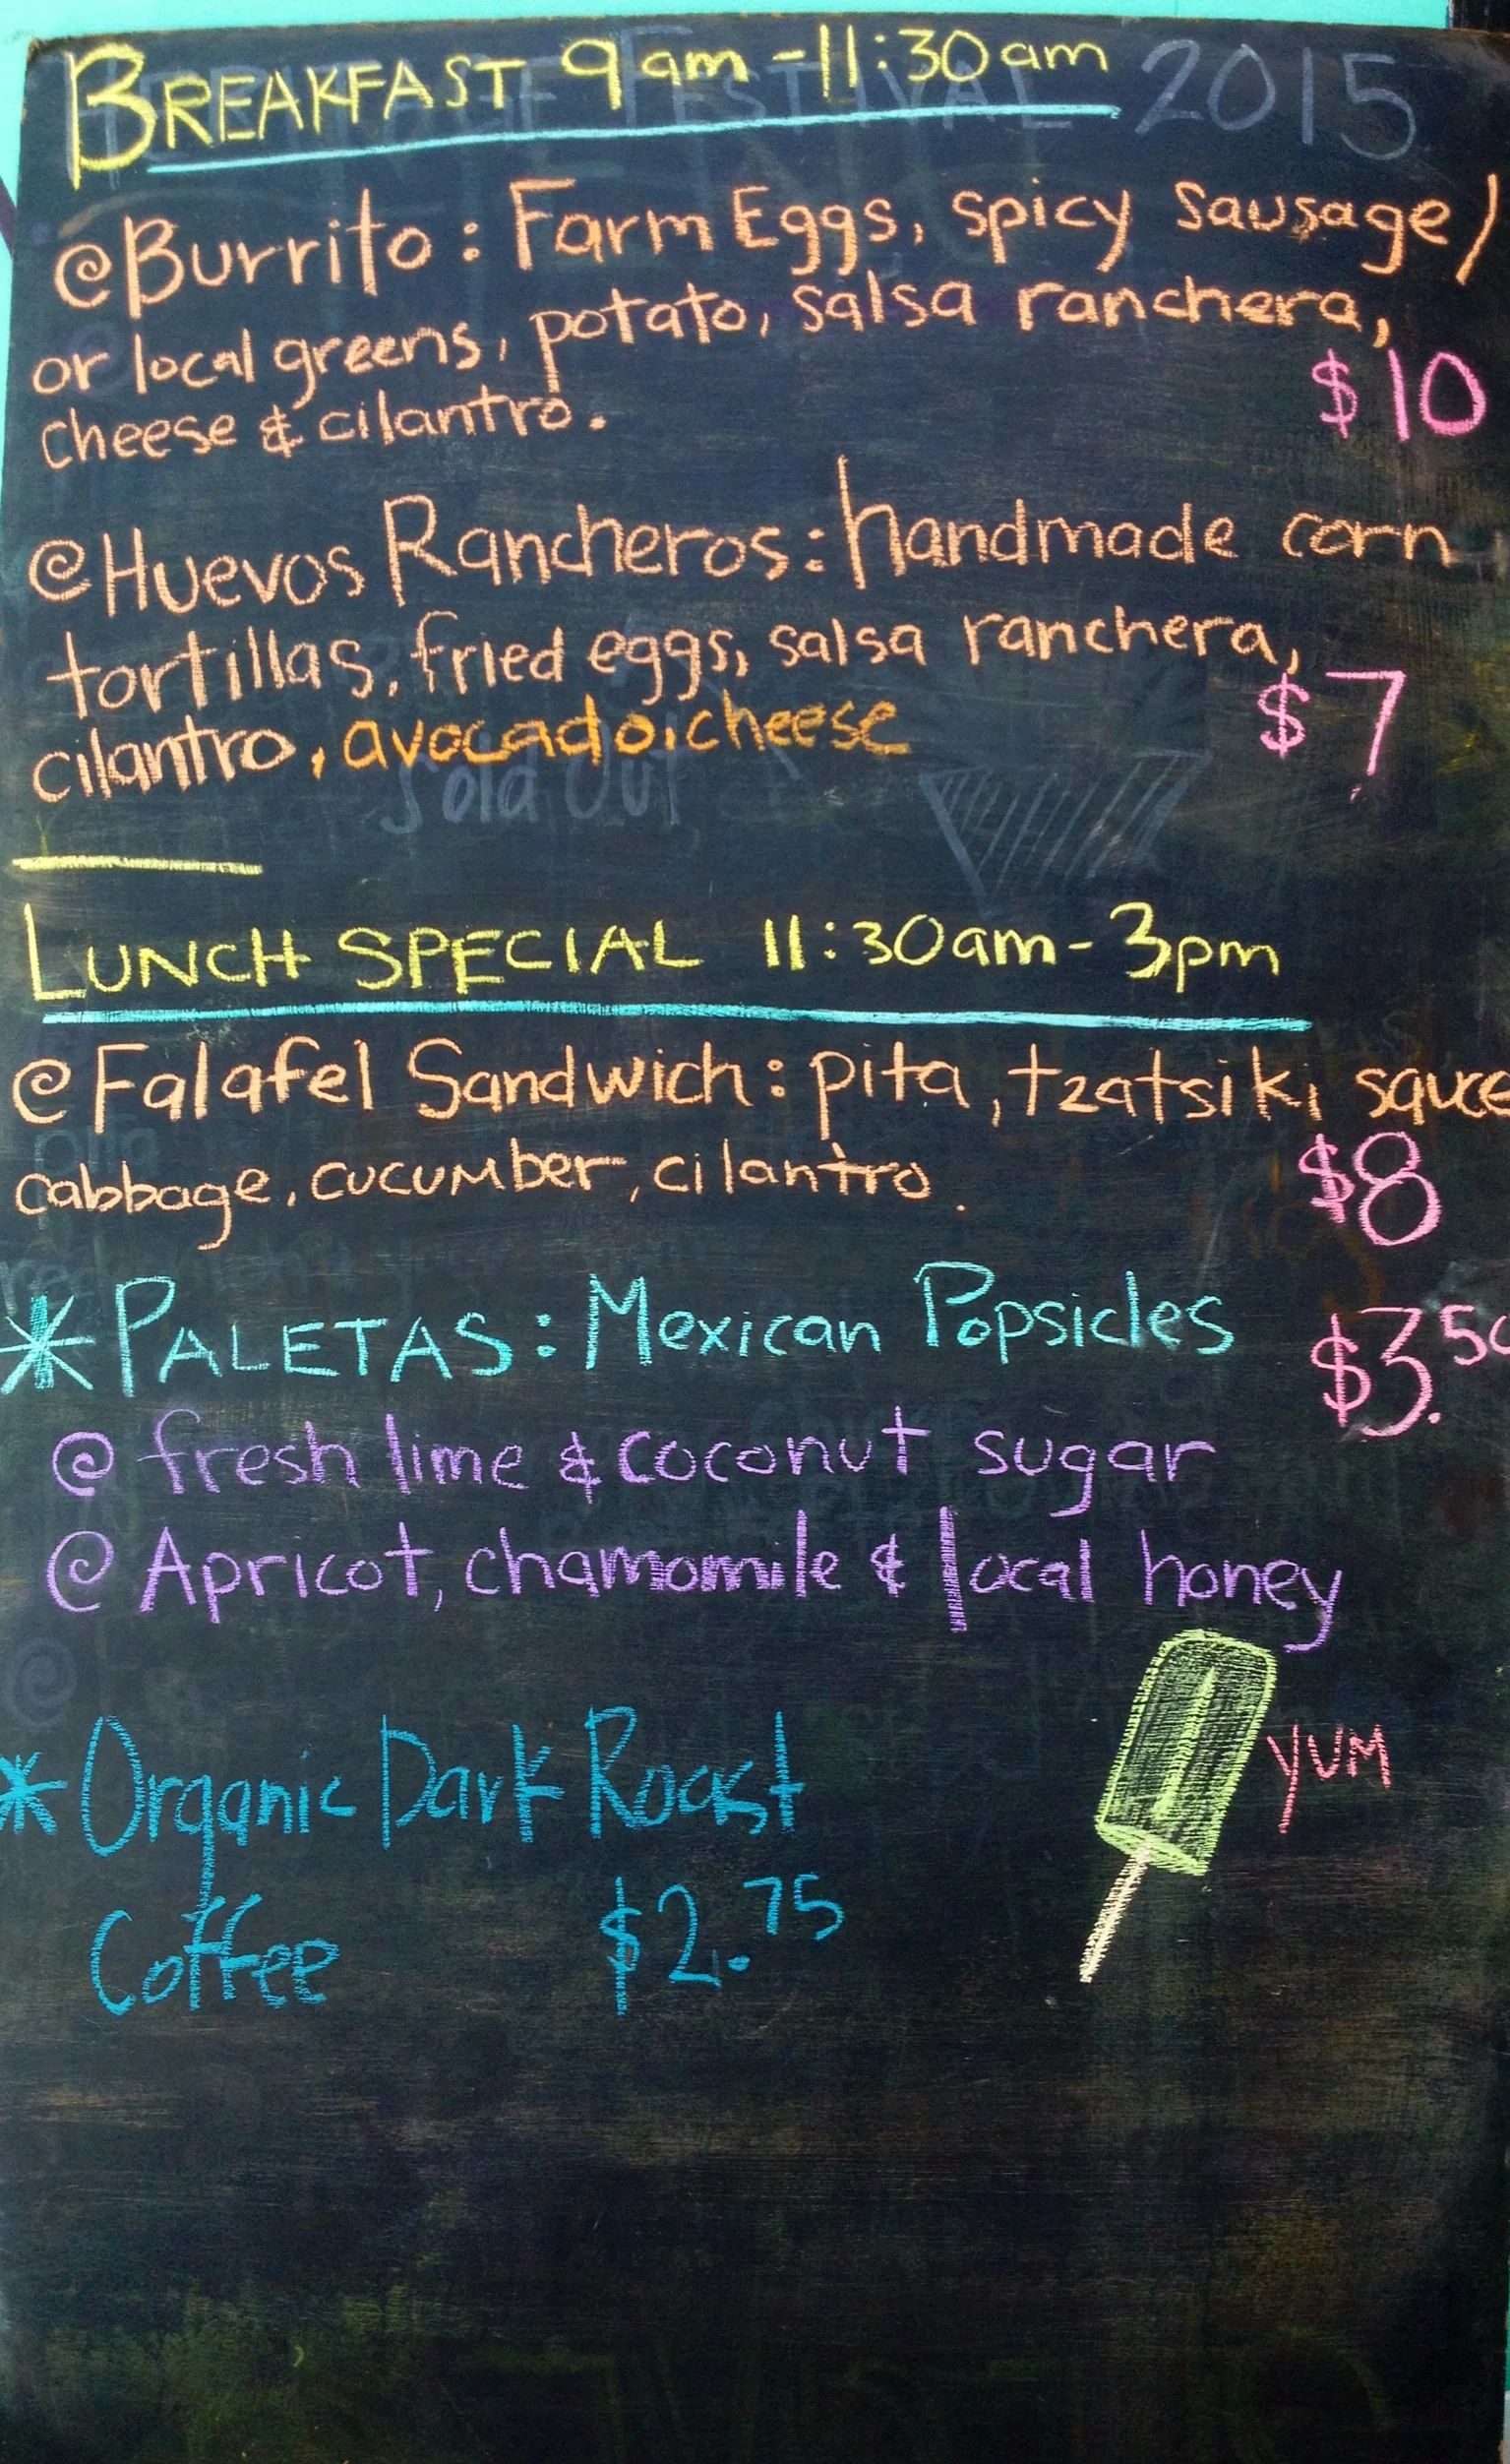 BREAKFAST 9am-11:30am
FESTIVAL 2015
@Burrito: Farm Eggs, spicy sausage/
or local greens, potato, salsa ranchera,
cheese & cilantro.
$10
@Huevos Rancheros: handmade corn
tortillas, fried eggs, salsa ranchera,
cilantro, avocado, cheese
$7
Sold Out
LUNCH SPECIAL 11:30am-3pm
@Falafel Sandwich: pita, tzatsiki sauce
cabbage, cucumber, cilantro.
$8
*PALETAS: Mexican Popsicles
$3.50
@ fresh lime & coconut sugar
@ Apricot, chamomile & local honey
YUM
* Organic Dark Roast
Coffee $2.75